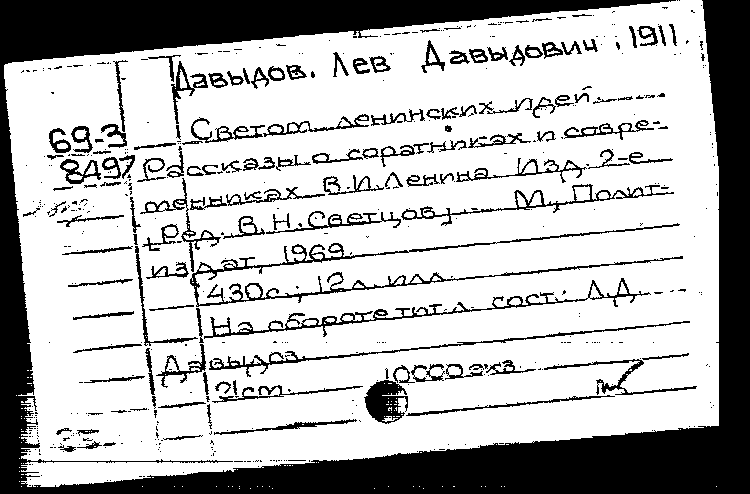 Давыдов. Лев Давыдович, 1911.
69-3
8497
Светом ленинских идей.
Рассказы о соратниках и совре-
менниках В.И.Ленина. Изд. 2-е.
[Ред. В.Н.Светцов] М., Полит-
издат, 1969.
430с.; 12л. илл.
На обороте тит.л. сост.: Л.Д.
Давыдов.
21см. 10000 экз.
35